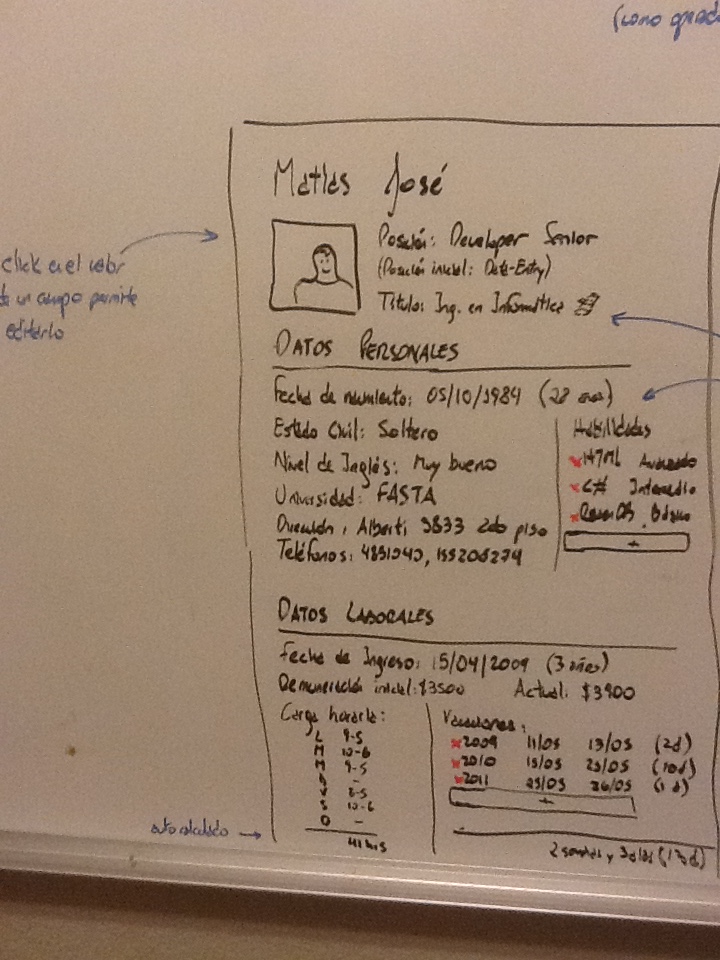 (como qued
Matías José
Posición: Developer Senior
(Posición inicial: Data-Entry)
Título: Ing. en Informática
click en el valor
de un campo permite
editarlo
DATOS PERSONALES
Fecha de nacimiento: 05/10/1984 (28 años)
Estado Civil: Soltero
Nivel de Inglés: Muy bueno
Universidad: FASTA
Dirección: Alberti 3833 2do piso
Teléfonos: 4851243, 155206274
Habilidades
x HTML Avanzado
x C# Intermedio
x Básico
+
DATOS LABORALES
Fecha de Ingreso: 15/04/2009 (3 años)
Remuneración inicial: $3500 Actual: $3900
Carga horaria:
L 9-5
M 10-6
M 9-5
-
V 8-5
S 10-6
D -
autocalculado
41 hrs
Vacaciones:
x 2009 11/05 13/05 (2d)
x 2010 15/05 25/05 (10d)
x 2011 25/05 26/05 (1d)
+
2 semanas y 3 días (13d)